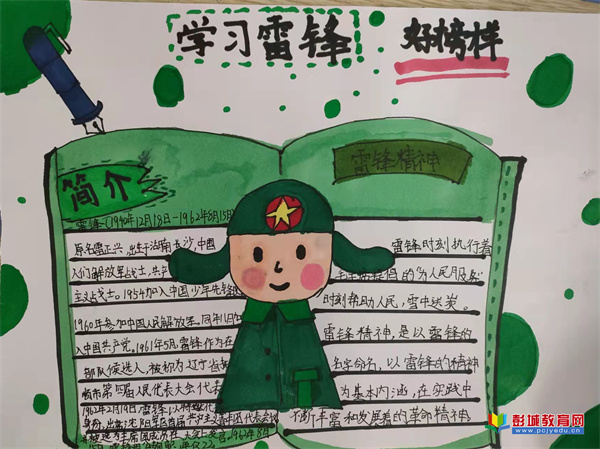 学习雷锋 好榜样
简介
雷锋(1940年12月18日-1962年8月15日
原名雷正兴,出生于湖南长沙,中国
人们解放军战士,共产
主义战士。1954加入中国少年先锋
1960年参加中国人民解放军,同年11月加
入中国共产党。1961年5月,雷锋作为在
部队候选人,被称为辽宁省抚
顺市第四届人民代表大会代表
1962年2月19日,雷锋以特邀代
身份,出席沈阳军区首届共产主义青年团代表会议
1962年8月
雷锋精神
雷锋时刻执行着
的为人民服务
时刻帮助人民,雪中送炭。
雷锋精神,是以雷锋的
名字命名,以雷锋的精神
为基本内涵,在实践中
不断丰富和发展着的革命精神
彭城教育网
pcjyedu.cn